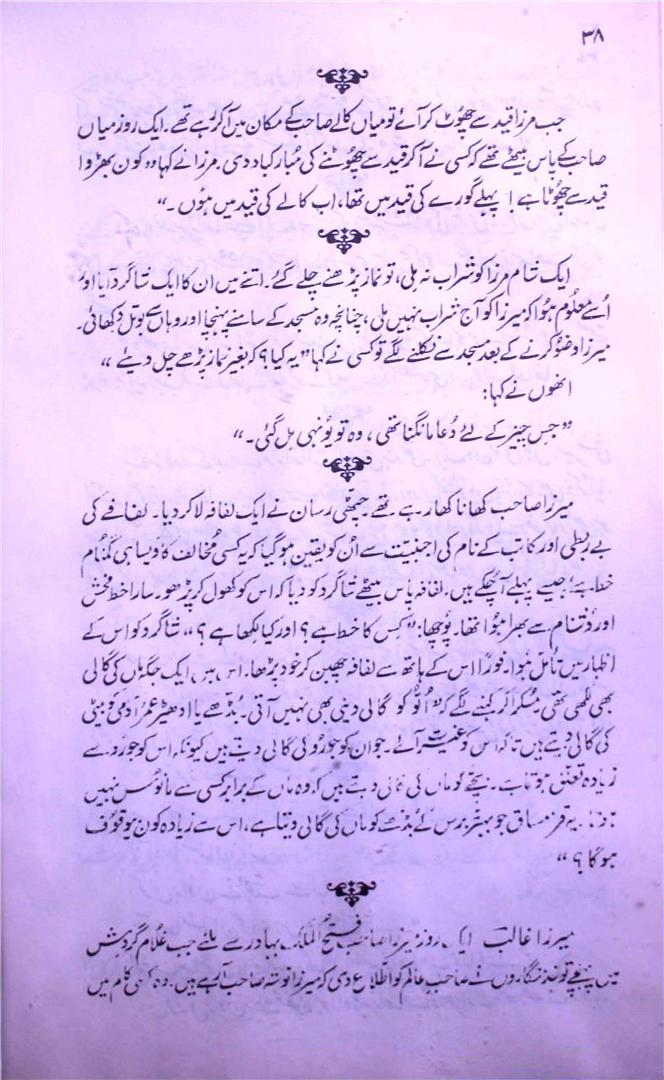 ۳۸
جب مرزا قید سے چھوٹ کر آئے تو میاں کالے صاحب کے مکان میں آکر رہے تھے۔ ایک روز میاں
صاحب کے پاس بیٹھے تھے کہ کسی نے آکر قید سے چھوٹنے کی مُبارکباد دی۔ مرزا نے کہا وہ کون بھڑوا
قید سے چھوٹا ہے! پہلے گورے کی قید میں تھا، اب کالے کی قید میں ہوں۔“
ایک شام مرزا کو شراب نہ ملی، تو نماز پڑھنے چلے گئے۔ اتنے میں ان کا ایک شاگرد آیا اور
اُسے معلُوم ہوا کہ میرزا کو آج شراب نہیں ملی، چنانچہ وہ مسجد کے سامنے پہنچا اور وہاں سے بوتل دکھائی۔
میرزا وضو کرنے کے بعد مسجد سے نکلنے لگے تو کسی نے کہا” یہ کیا؟ کہ بغیر نماز پڑھے چل دیئے“
انھوں نے کہا:
”جس چیز کے لئے دُعا مانگنا تھی، وہ تو یُونہی مِل گئی۔“
میرزا صاحب کھانا کھا رہے تھے۔ چٹھی رسان نے ایک لفافہ لا کر دیا۔ لفافے کی
بے ربطی اور کاتب کے نام کی اجنبیت سے اُن کو یقین ہوگیا کہ یہ کسی مخالف کا ویسا ہی گمنام
خط ہے، جیسے پہلے آ چکے ہیں۔ لفافہ پاس بیٹھے شاگرد کو دیا کہ اس کو کھول کر پڑھو۔ سارا خط فحش
اور دُشنام سے بھرا ہوا تھا۔ پُوچھا: ”کِس کا خط ہے؟ اور کیا لکھا ہے؟“ شاگرد کو اس کے
اظہار میں تامّل ہُوا۔ فوراً اس کے ہاتھ سے لفافہ چھین کر خود پڑھا۔ اس میں ایک جگہ ماں کی گالی
بھی لکھی تھی۔ مُسکرا کر کہنے لگے کہ” اُلّو کو گالی دینی بھی نہیں آتی۔ بُڈھے یا ادھیڑ عمر آدمی کو بیٹی
کی گالی دیتے ہیں تاکہ اس کو غیرت آئے۔ جوان کو جورُو کی گالی دیتے ہیں کیونکہ اس کو جورو سے
زیادہ تعلق ہوتا ہے۔ بچّے کو ماں کی گالی دیتے ہیں کہ وہ ماں کے برابر کسی سے مانُوس نہیں
ہوتا۔ یہ قرمساق جو بہتر برس کے بڈھے کو ماں کی گالی دیتا ہے، اس سے زیادہ کون بیوقوف
ہوگا؟“
میرزا غالب ایک روز میرزا صاحب فتح الملک بہادر سے ملنے جب غلام گردش
میں پہنچے تو خدمتگاروں نے صاحبِ عالم کو اطلاع دی کہ میرزا نوشہ صاحب آرہے ہیں۔ وہ کسی کام میں